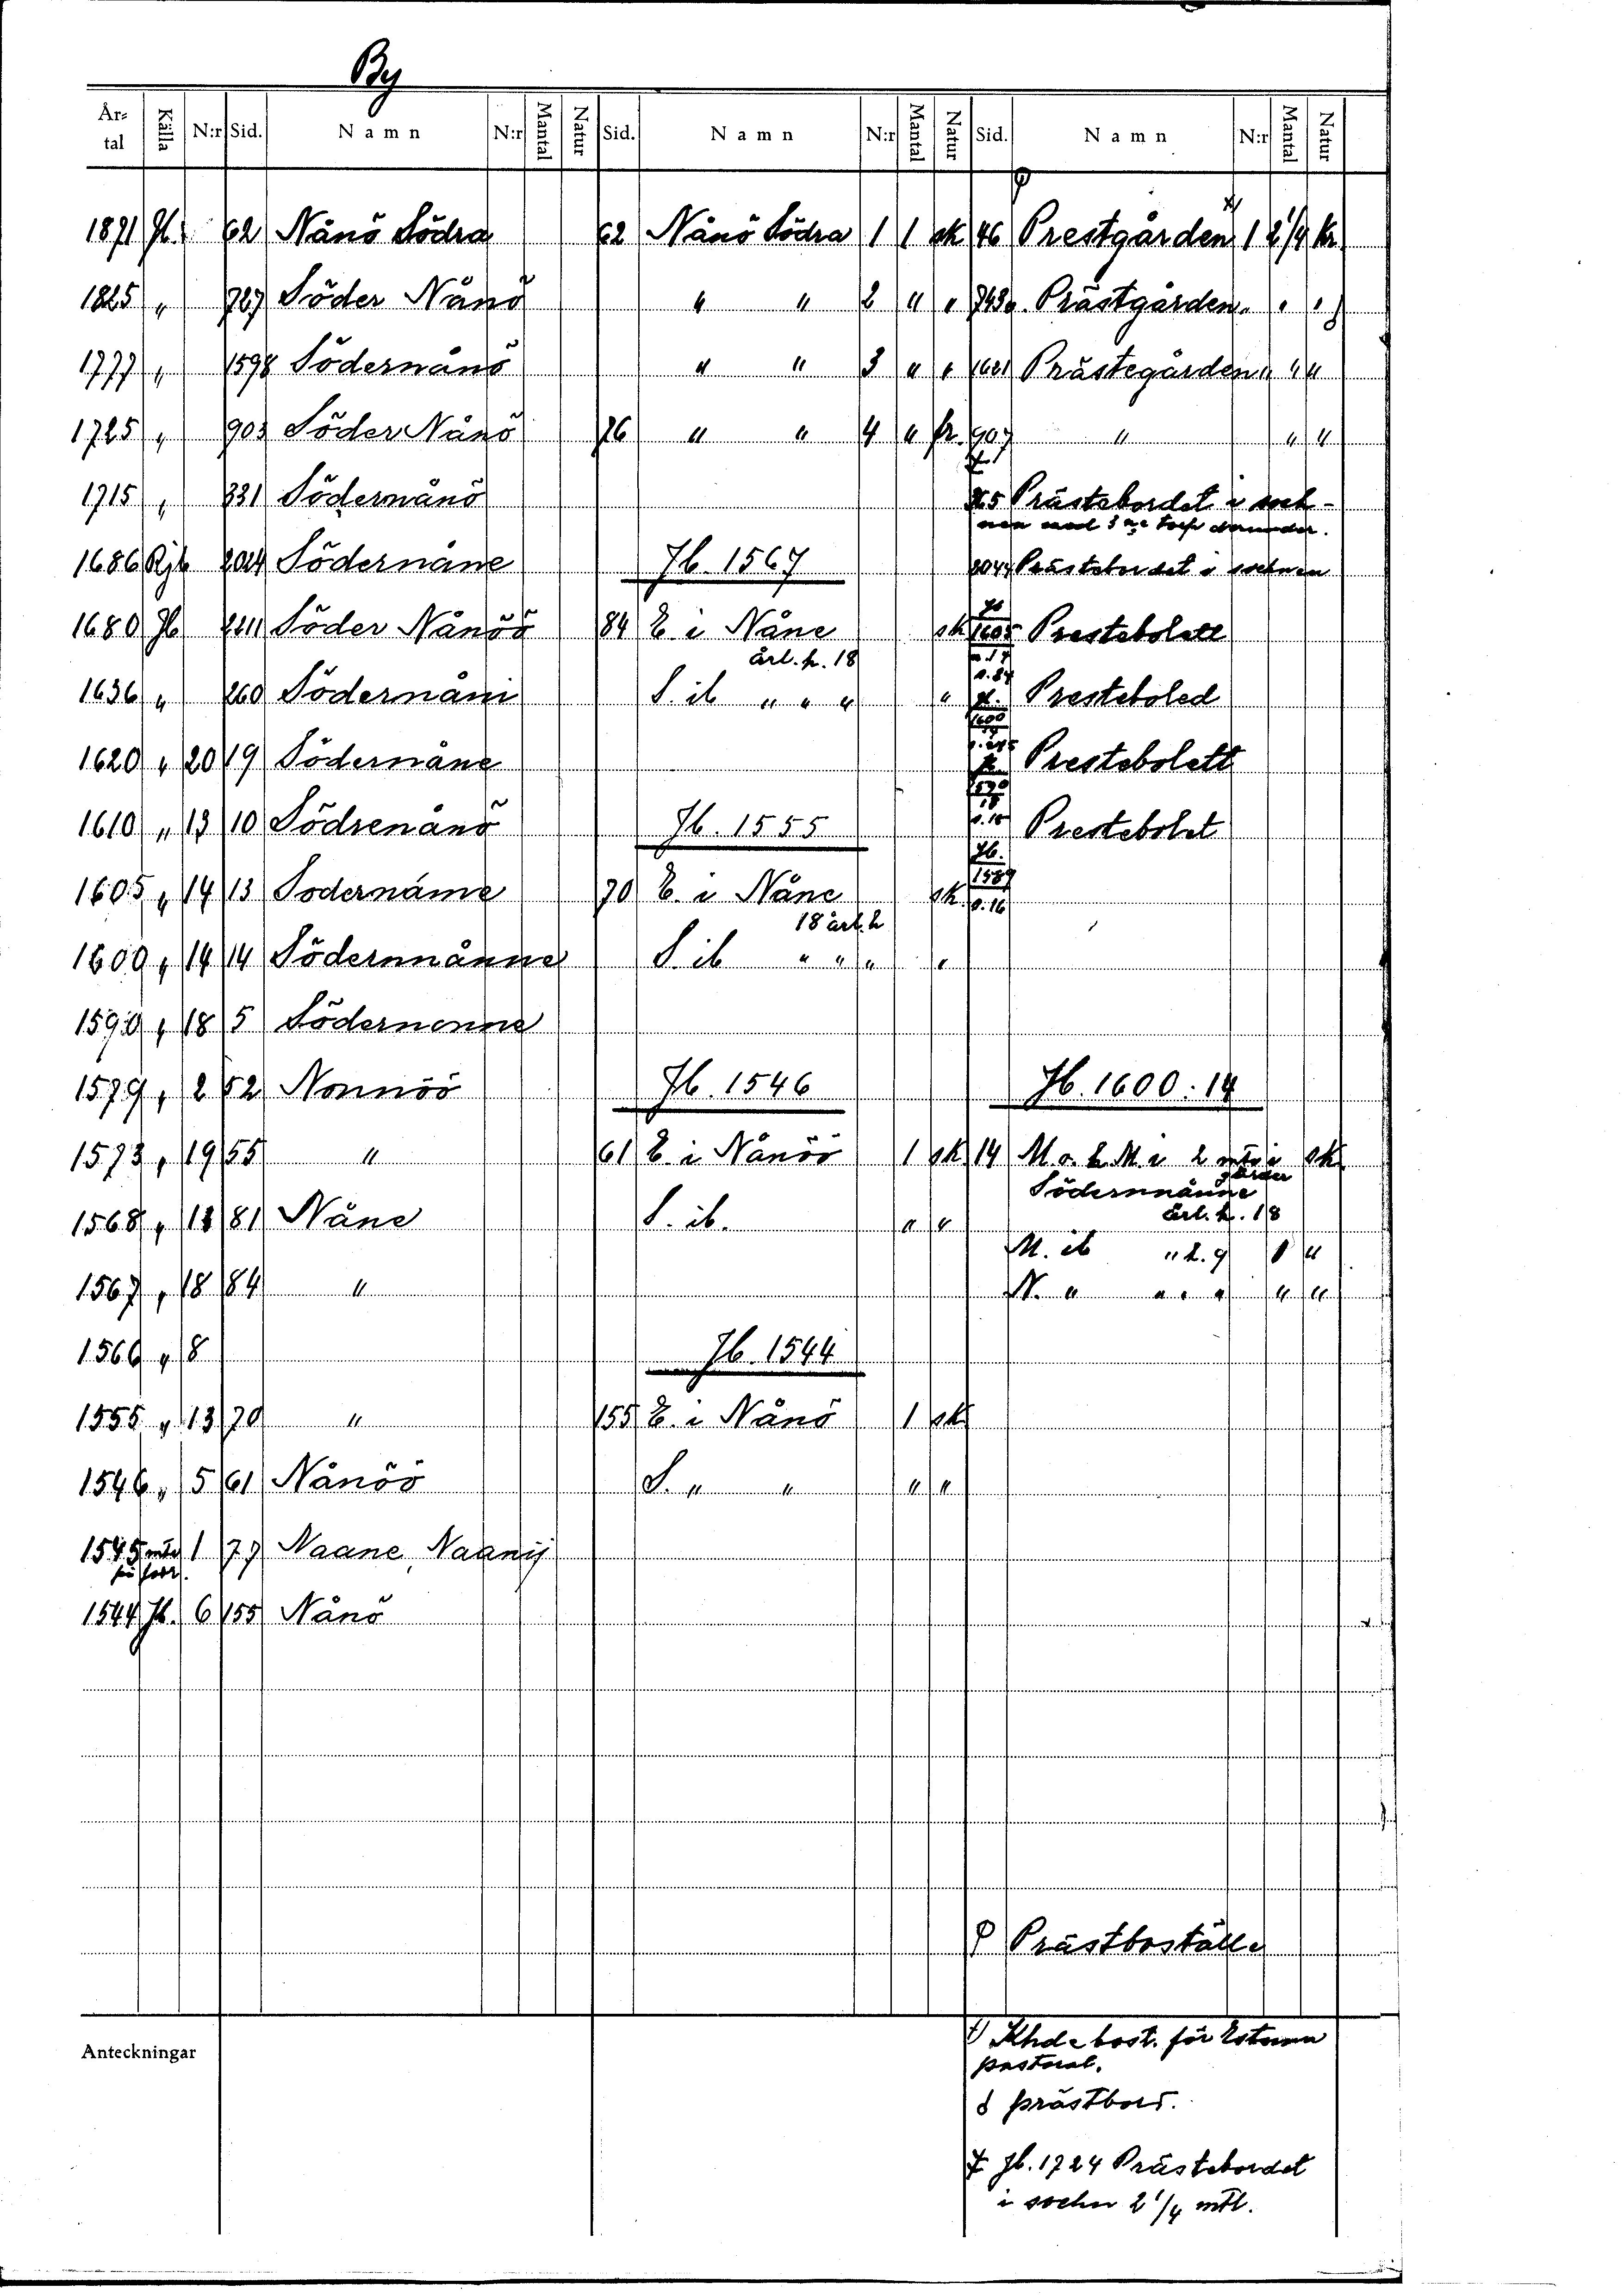 By
År-tal Källa N:r Sid. Namn N:r Mantal Natur Sid. Namn N:r Mantal Natur Sid. Namn N:r Mantal Natur
1871 Jb. 62 Nånö Södra 62 Nånö Södra 1 1 sk 46 Prestgården 1 2 1/4 Kr
1825 " 727 Söder Nånö " " 2 " " 743 Prästgården " " "
1777 " 1598 Södernånö " " 3 " " 1621 Prästegården " " "
1725 " 903 Söder Nånö 76 " " 4 " fr. 907 " " "
1715 " 331 Södernånö Prästebordet i soch-
nen med 3 ne torp derunder.
1686 Rjb 2024 Södernåne Jb. 1567 2044 Prästebordet i sochnen
1680 Jb 2211 Söder Nånöö 84 E. i Nåne sk Jb 1605 Prestebolett
årl. h. 18
1636 " 260 Södernåni S. ib " " " " Presteboled
1620 " 20 19 Södernåne Prestebolett
1610 " 13 10 Södrenånö Jb. 1555 Prestebolet
Jb. 1589
1605 " 14 13 Sodernåme 70 E. i Nåne sk. s. 16
18 årl. h
1600 " 14 14 Södernnånne S. ib " " " "
1590 " 18 5 Södernonne
1579 " 2 52 Nonnöö Jb. 1546 Jb. 1600:14
1573 " 19 55 " 61 E. i Nånöö 1 sk 14 M. o. L. M. i 2 sk
Södernnånne
årl. h. 18
1568 " 13 81 Nåne S. ib. " "
M. ib " h. 9 "
1567 " 18 84 " N. " " " " " "
1566 " 8 Jb. 1544
1555 " 13 70 " 155 E. i Nånö 1 sk
1546 " 5 61 Nånöö S. " " " "
1545 1 77 Naane, Naanij
1544 Jb. 6 155 Nånö
Prästboställe
Anteckningar
Khde bost. för Estuna
pastorat.
prästbord.
Jb. 1724 Prästebordet
i sochn 2 1/4 mtl.